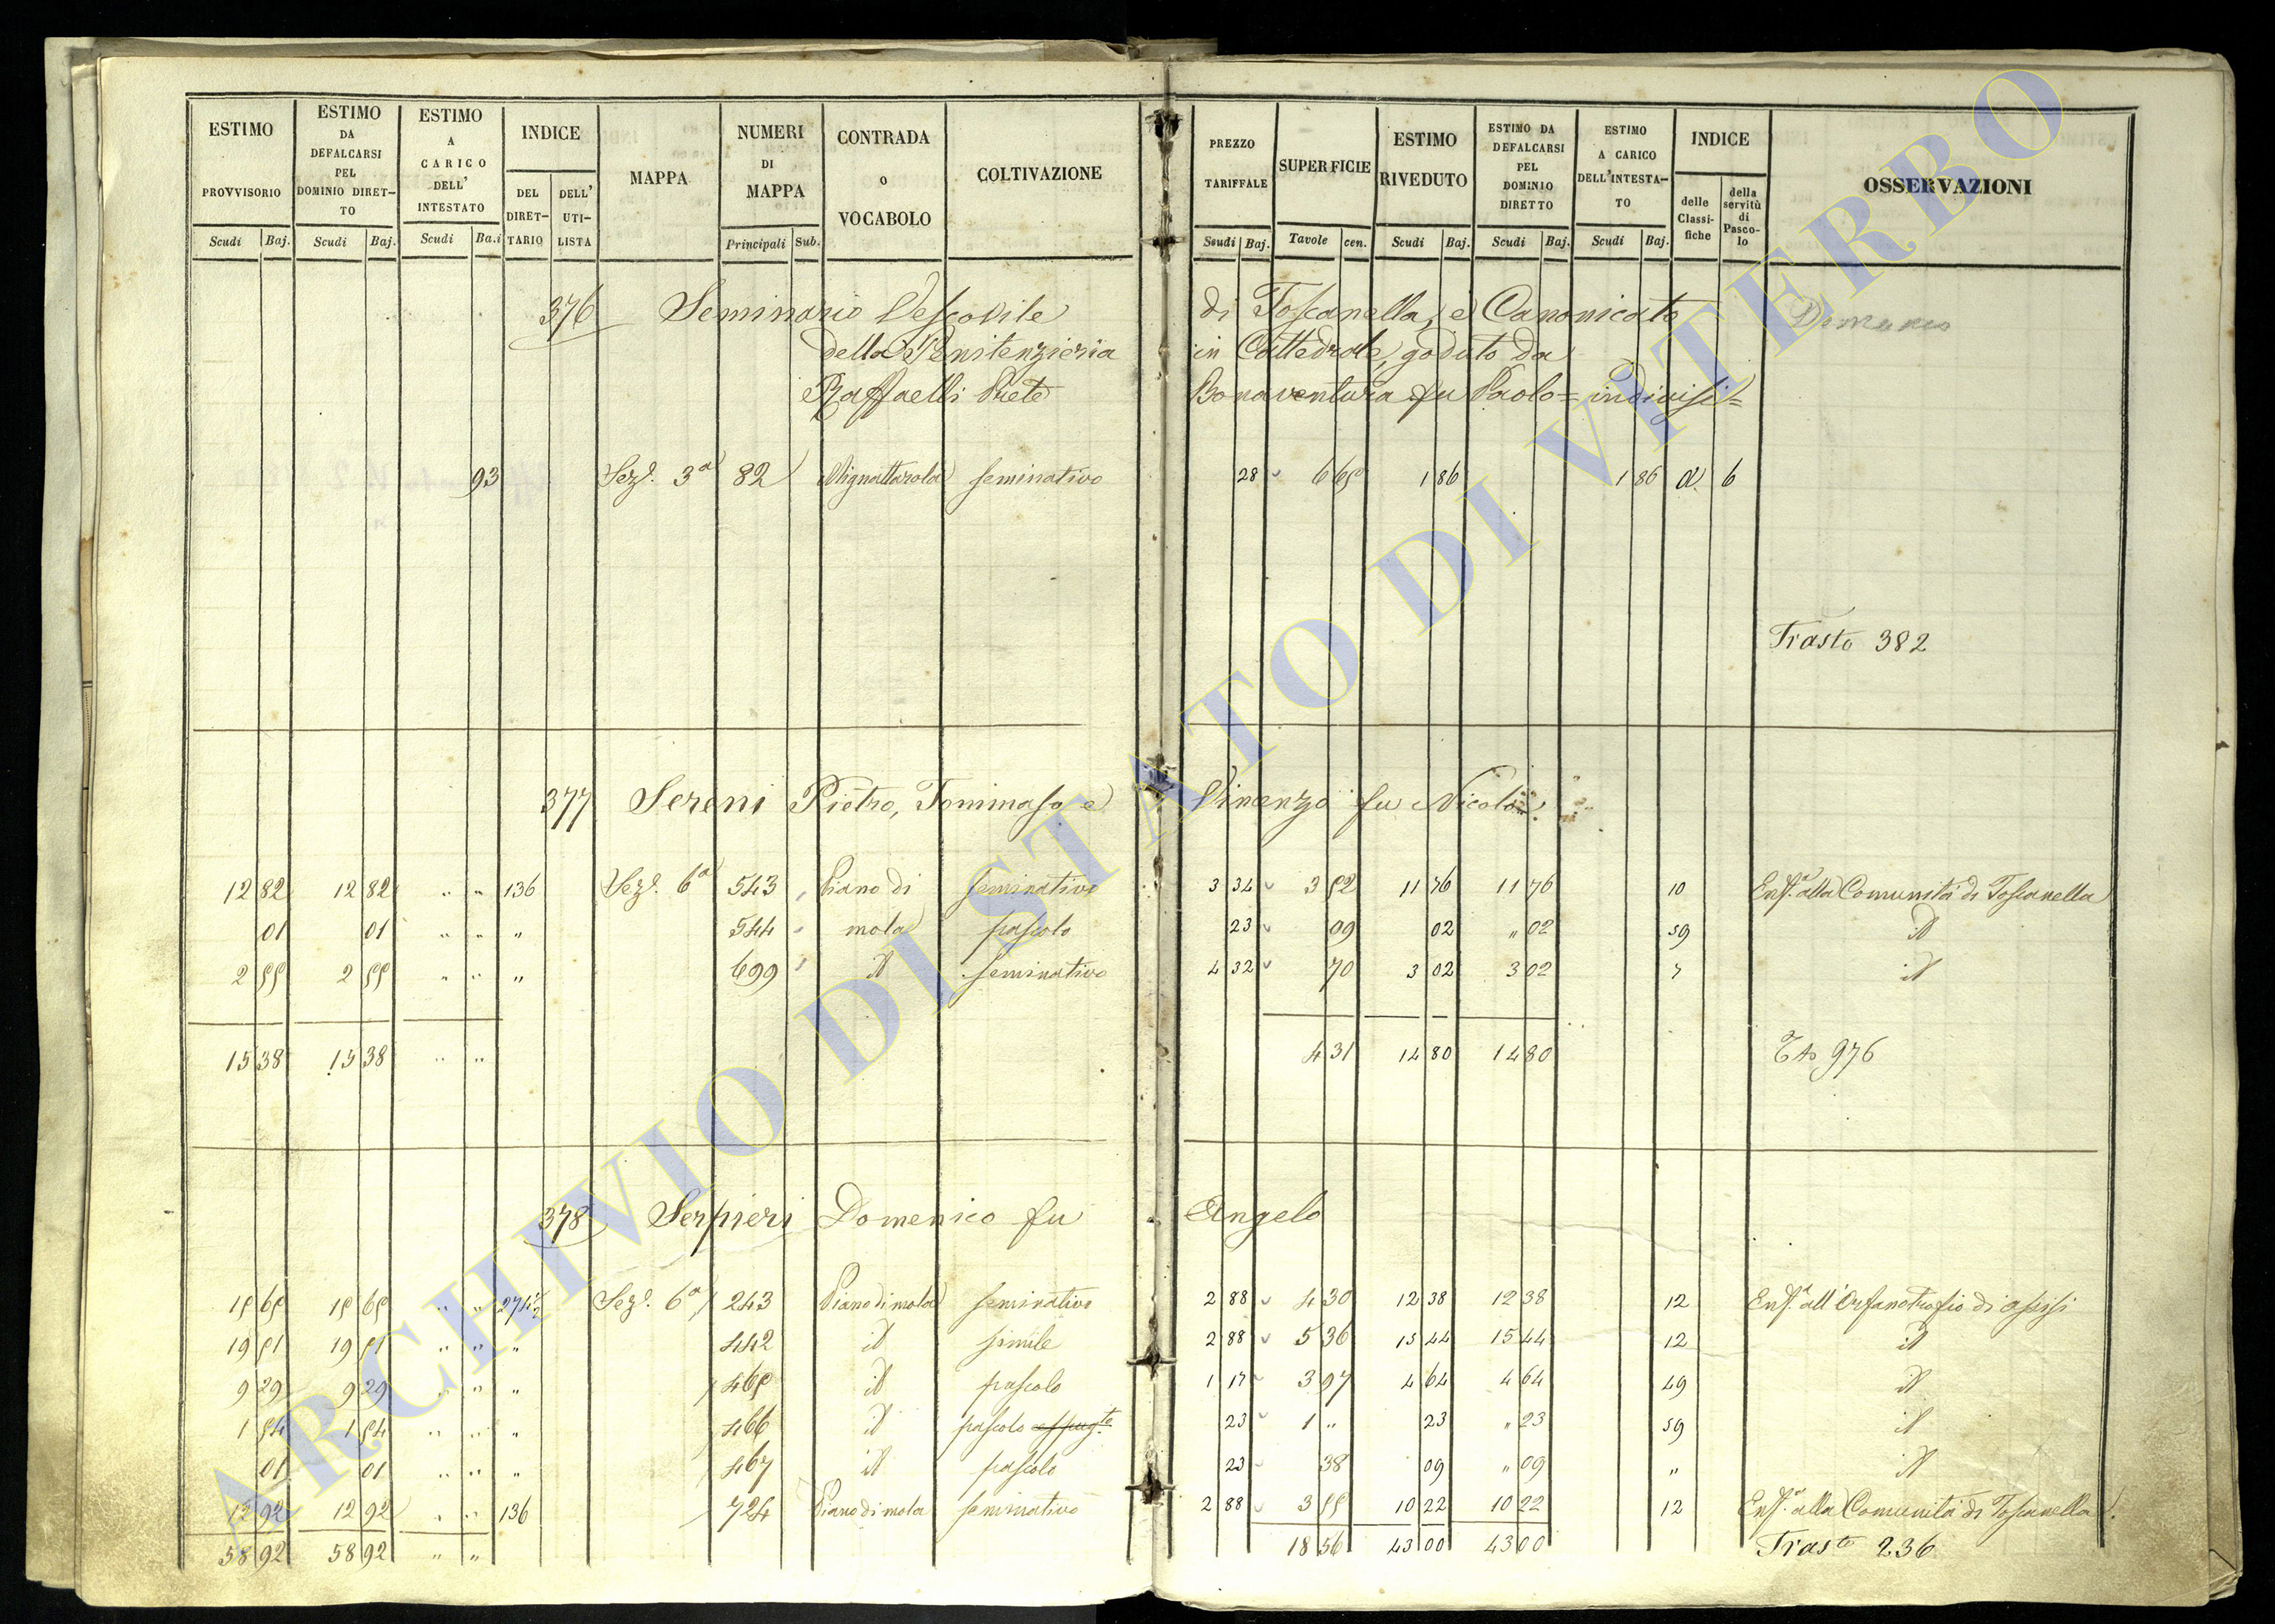 ESTIMO PROVVISORIO Scudi Baj.
ESTIMO DA DEFALCARSI PEL DOMINIO DIRET-TO Scudi Baj.
ESTIMO A CARICO DELL' INTESTATO Scudi Ba.i
INDICE DEL DIRET-TARIO DELL' UTI-LISTA
MAPPA
NUMERI DI MAPPA Principali Sub.
CONTRADA O VOCABOLO
COLTIVAZIONE
PREZZO TARIFFALE Scudi Baj.
SUPERFICIE Tavole cen.
ESTIMO RIVEDUTO Scudi Baj.
ESTIMO DA DEFALCARSI PEL DOMINIO DIRETTO Scudi Baj.
ESTIMO A CARICO DELL'INTESTA-TO Scudi Baj.
INDICE delle Classi-fiche della servitù di Pasco-lo
OSSERVAZIONI
376 Seminario Vescovile di Toscanella, e Canonicato
della Penitenzieria in Cattedrale, goduto da
Raffaelli Prete Bonaventura fu Paolo = indivisi =
93 Sez.e 3a 82 Mignattarola seminativo 28 6 65 1 86 1 86 a 6
Trasto 382
377 Sereni Pietro, Tommaso e Vincenzo fu Nicola
12 82 12 82 " " 136 Sez.e 6a 543 Piano di seminativo 3 34 3 52 11 76 11 76 10 Enf.a alla Comunità di Toscanella
01 01 " " " 544 mola pascolo 23 09 02 " 02 59 id
2 55 2 55 " " " 699 id seminativo 4 32 70 3 02 3 02 7 id
15 38 15 38 " " 4 31 14 80 14 80 976
378 Serpieri Domenico fu Angelo
15 65 15 65 " " 274 1/2 Sez.e 6a 243 Piano di mola seminativo 2 88 4 30 12 38 12 38 12 Enf.a all'Orfanotrofio di assisi
19 51 19 51 " " " 442 id simile 2 88 5 36 15 44 15 44 12 id
9 29 9 29 " " " 465 id pascolo 1 17 3 97 4 64 4 64 49 id
1 54 1 54 " " " 466 id pascolo 23 1 " 23 " 23 59 id
01 01 " " " 467 id pascolo 23 38 09 " 09 " id
12 92 12 92 " " 136 724 Piano di mola seminativo 2 88 3 55 10 22 10 22 12 Enf.a alla Comunità di Toscanella
58 92 58 92 " " 18 56 43 00 43 00 Trasto 236
ARCHIVIO DI STATO DI VITERBO